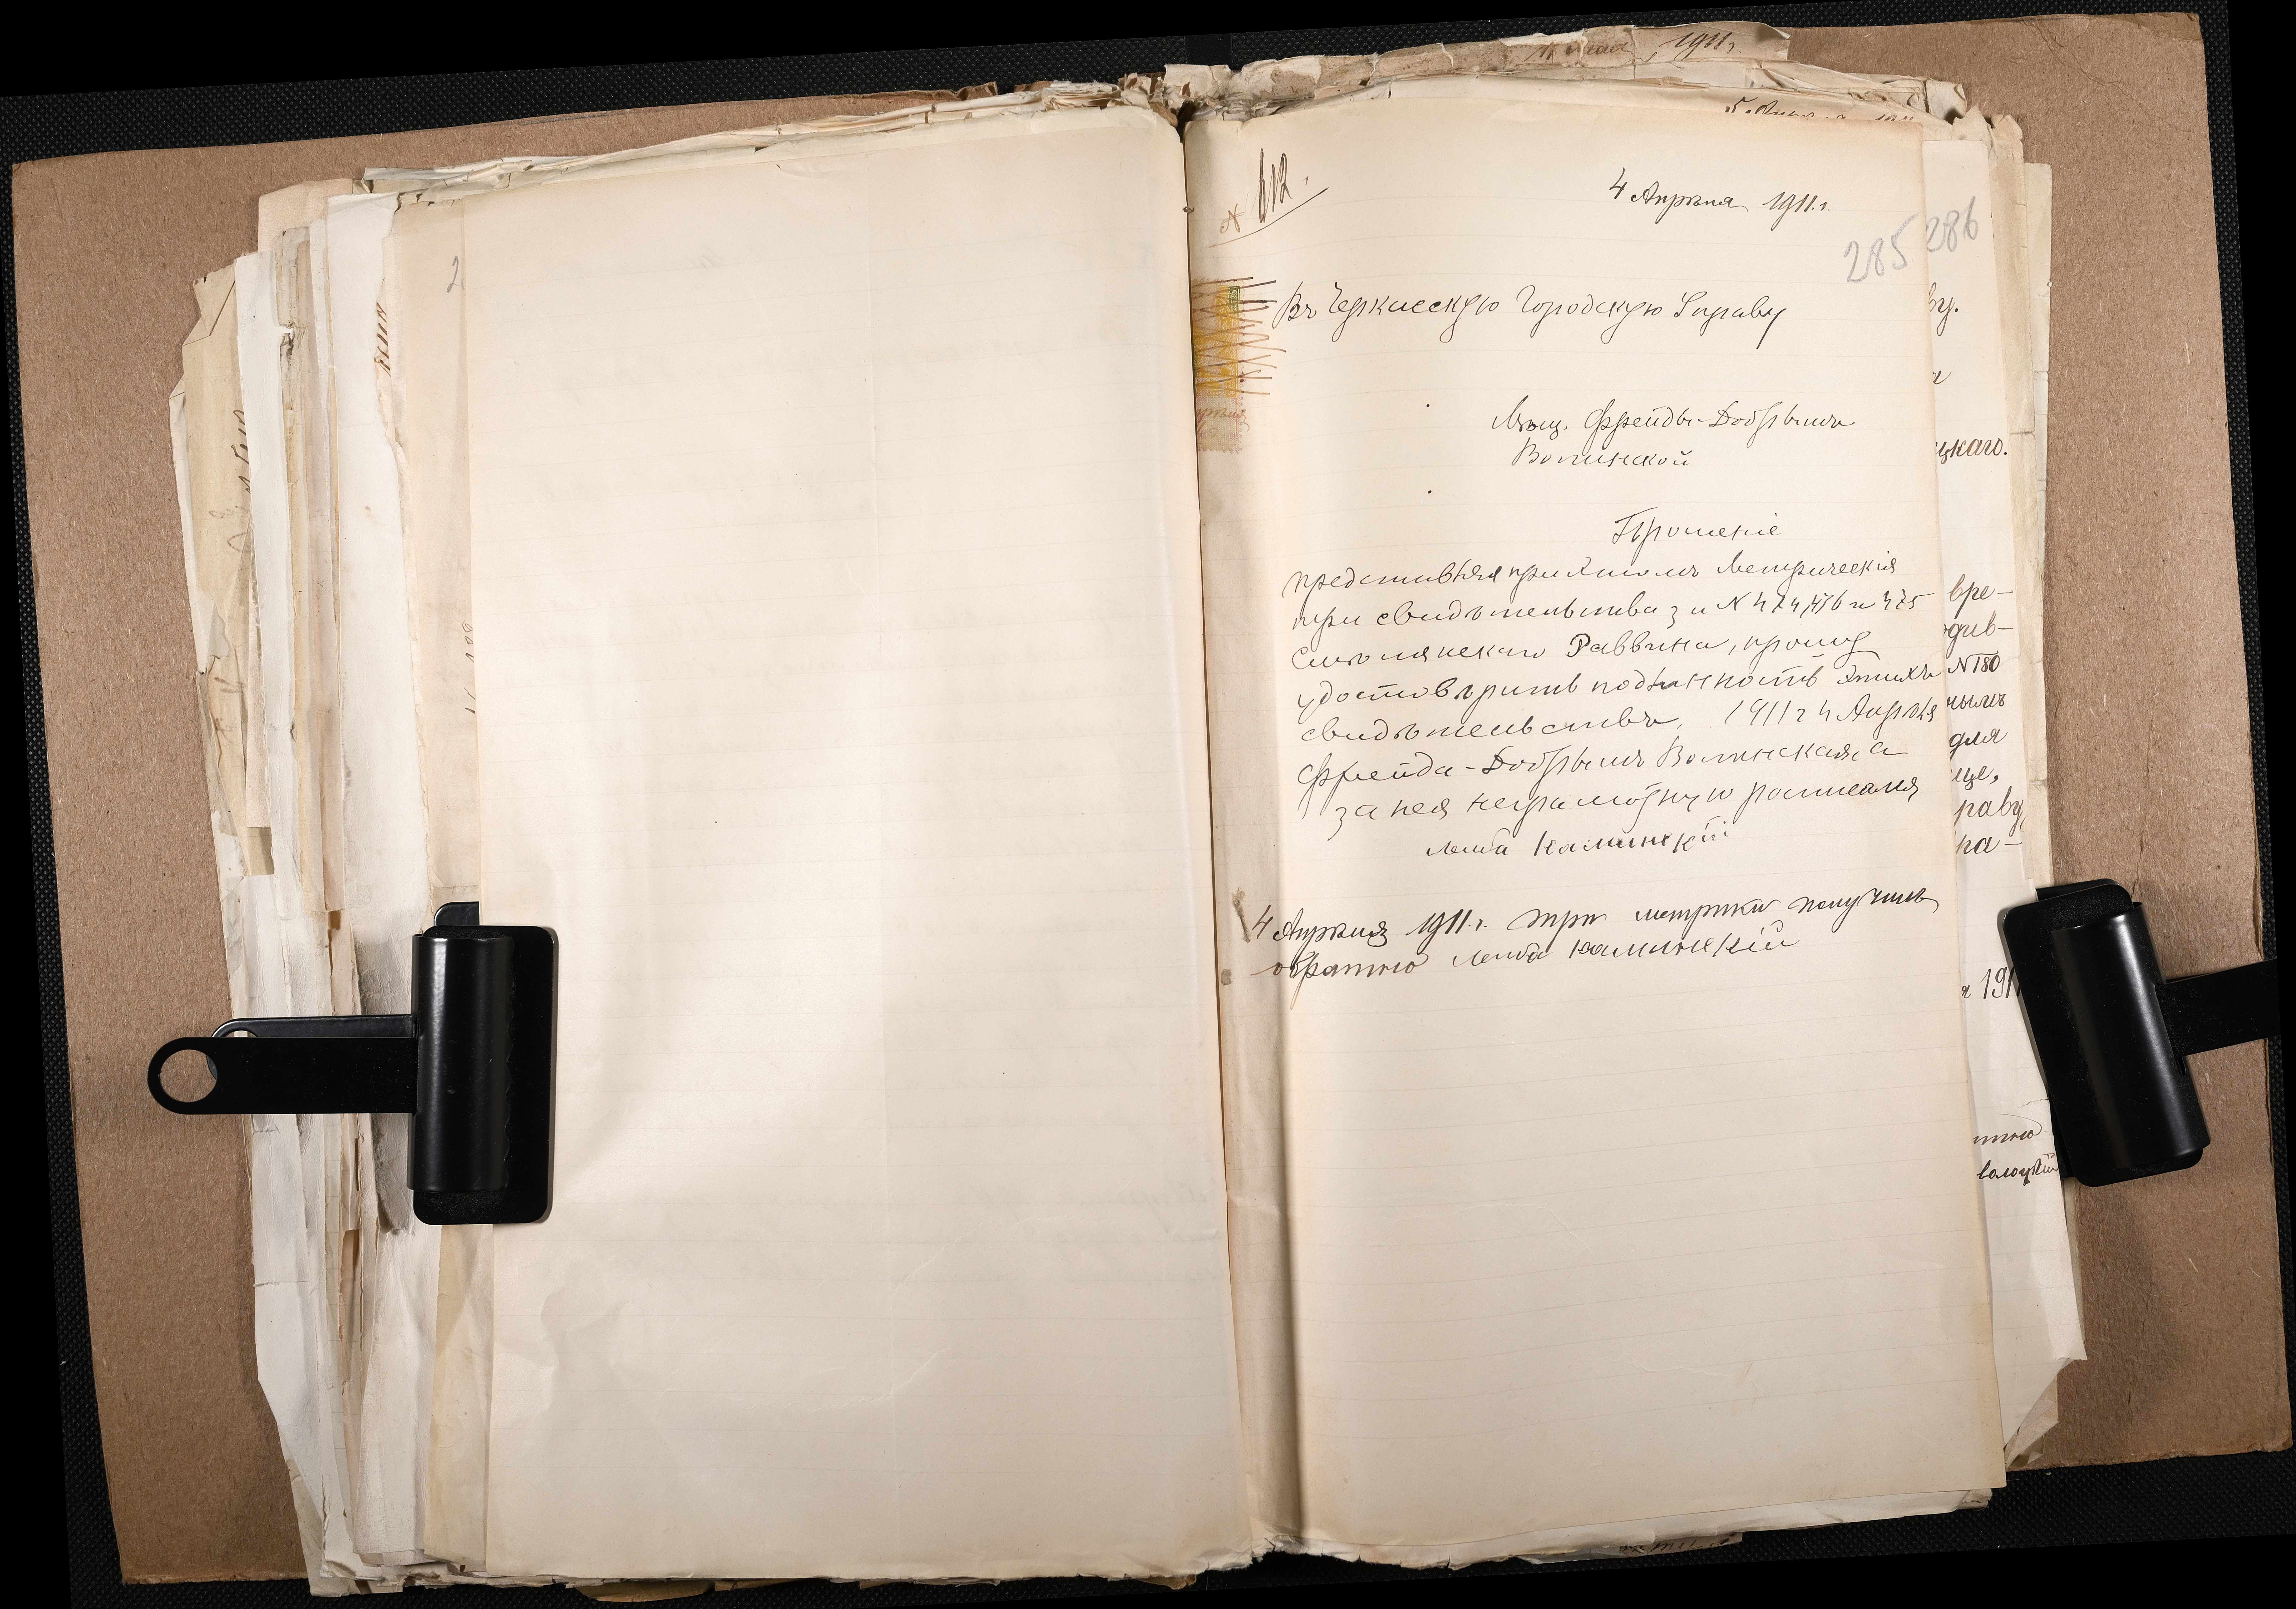 № 612.
4 Апрѣля 1911 г.
285
286
Въ Черкасскую Городскую Управу
Мѣщ. Фрейды-Добрышъ
Волинской
Прошеніе
представляя при этомъ метрическія
три свидѣтельства за № 474, 476 и 475
Смѣлянскаго Раввина, прошу
удостовѣрить подлинность этихъ
свидѣтельствъ. 1911 г 4 Апрѣля
Фрейда-Добрышъ Волинская, а
за нея неграмотную росписался
Лейба Калинскій
4 Апрѣля 1911 г. три метрики получилъ
обратно Лейба Калинскій
ву.
цкаго.
вре-
одив-
№ 180
нымъ
для
ще,
раву,
ра-
1911 г.